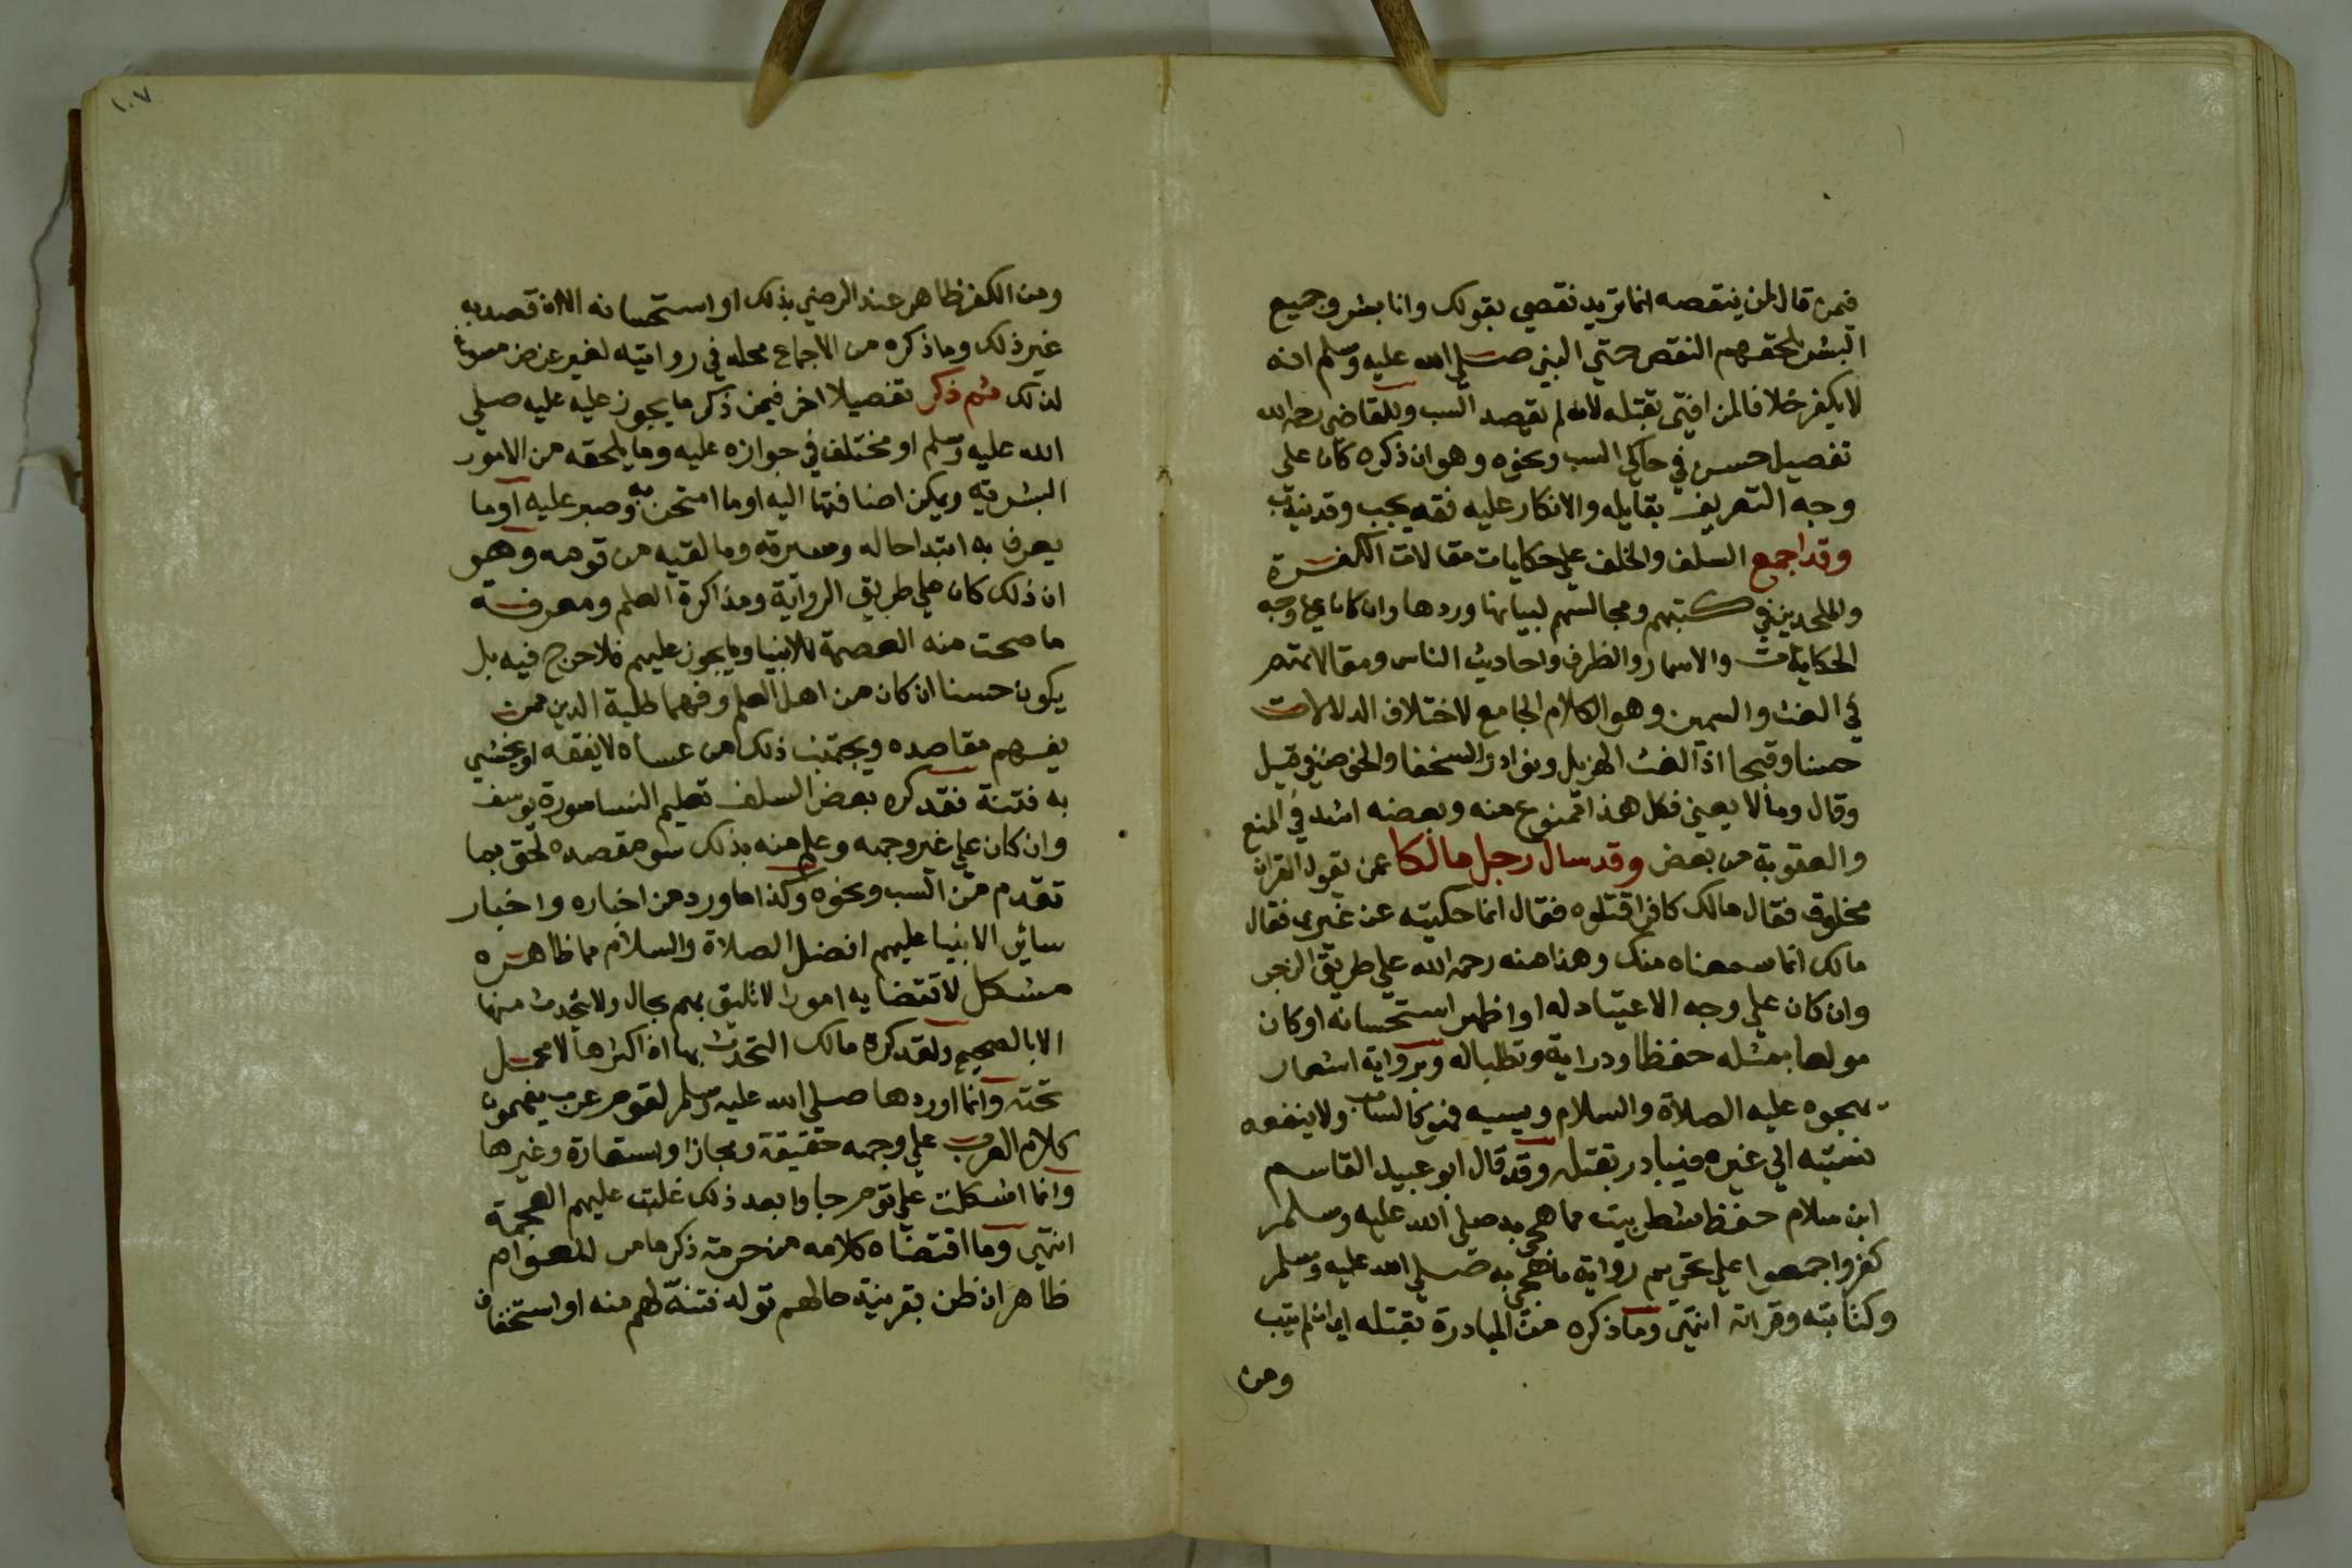 فيمن قال لمن ينتقصه انما تريد نقصي بقولك وانا بشر وجميع
البشر يلحقهم النقص حتي النبي صلي الله عليه وسلم انه
لا يكفر خلافا لمن افتي بقتله لانه لم يقصد السب وللقاضي رحمه الله
تفصيل حسن في حاكي السب ونحوه وهو ان ذكره كان علي
وجه التعريف بقايله والانكار عليه فقد يجب وقد يندب
وقد اجمع السلف والخلف علي حكايات مقالات الكفرة
والملحدين في كتبهم ومجالسهم لبيانها وردها وان كان علي وجه
الحكايات والاسمار والطرف واحاديث الناس ومقالاتهم
في الغث والسمين وهو الكلام الجامع لاختلاف الدلالات
حسنا وقبحا اذ الغث الهزيل ونوادر السخفا والخوض في قيل
وقال وما لا يعني فكل هذا ممنوع منه وبعضه اشد في المنع
والعقوبة من بعض وقد سال رجل مالكا عمن يقول القران
مخلوق فقال مالك كافر اقتلوه فقال انما حكيته عن غيري فقال
مالك انما سمعناه منك وهذا منه رحمه الله علي طريق الزجر
وان كان علي وجه الاعتياد له او اظهر استحسانه او كان
مولعا بمثله حفظا ودراية وتطلبا له وبرواية اشعار
هجوه عليه الصلاة والسلام وسبه فهو كالساب ولا ينفعه
نسبته الي غيره فيبادر بقتله وقد قال ابو عبيد القاسم
ابن سلام حفظ شطر بيت مما هجي به صلي الله عليه وسلم
كفر واجمعوا علي تحريم رواية ما هجي به صلي الله عليه وسلم
وكتابته وقراته انتهي وما ذكره من المبادرة بقتله اي ان لم يتب
ومن
١٠٧
ومن الكفر ظاهر عند الرضي بذلك او استحسانه الا ان قصد به
غير ذلك وما ذكره من الاجماع محله في روايته لغير غرض مسوغ
لذلك ثم ذكر تفصيلا اخر فيمن ذكر ما يجوز عليه عليه صلي
الله عليه وسلم او مختلف في جوازه عليه وما يلحقه من الامور
البشرية ويمكن اضافتها اليه او ما امتحن به وصبر عليه او ما
يعرف به ابتدا حاله وسيرته وما لقيه من قومه وهو
ان ذلك كان علي طريق الرواية ومذاكرة العلم ومعرفة
ما صحت منه العصمة للانبيا وما يجوز عليهم فلا حرج فيه بل
يكون حسنا ان كان من اهل العلم وفهما طلبة الدين ممن
يفهم مقاصده ويجتنب ذلك من عساه لا يفقه او يخشي
به فتنة فقد كره بعض السلف تعليم النسا سورة يوسف
وان كان علي غير وجهه وعلم منه بذلك سو مقصده لحق بما
تقدم من السب ونحوه وكذا ما ورد من اخباره واخبار
ساير الانبيا عليهم افضل الصلاة والسلام مما ظاهره
مشكل لاقتضايه امورا لا تليق بهم بحال ولا يتحدث منها
الا بالصحيح ولقد كره مالك التحدث بها اذ اكثرها لا عمل
تحته وانما اوردها صلي الله عليه وسلم لقوم عرب يفهمون
كلام العرب علي وجهه حقيقة ومجازا واستعارة وغيرها
وانما اشكلت علي قوم جاوا بعد ذلك غلبت عليهم العجمة
انتهي وما اقتضاه كلامه من حرمة ذكر ما مر للعوام
ظاهر ان ظن بقرينة حالهم تولد فتنة لهم منه او استخفاف